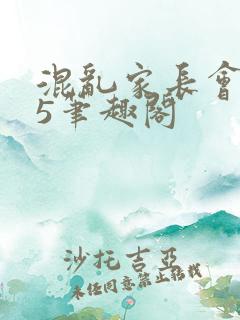 混亂家長會
5筆趣閣
沙托吉亞
未经同意禁止转载